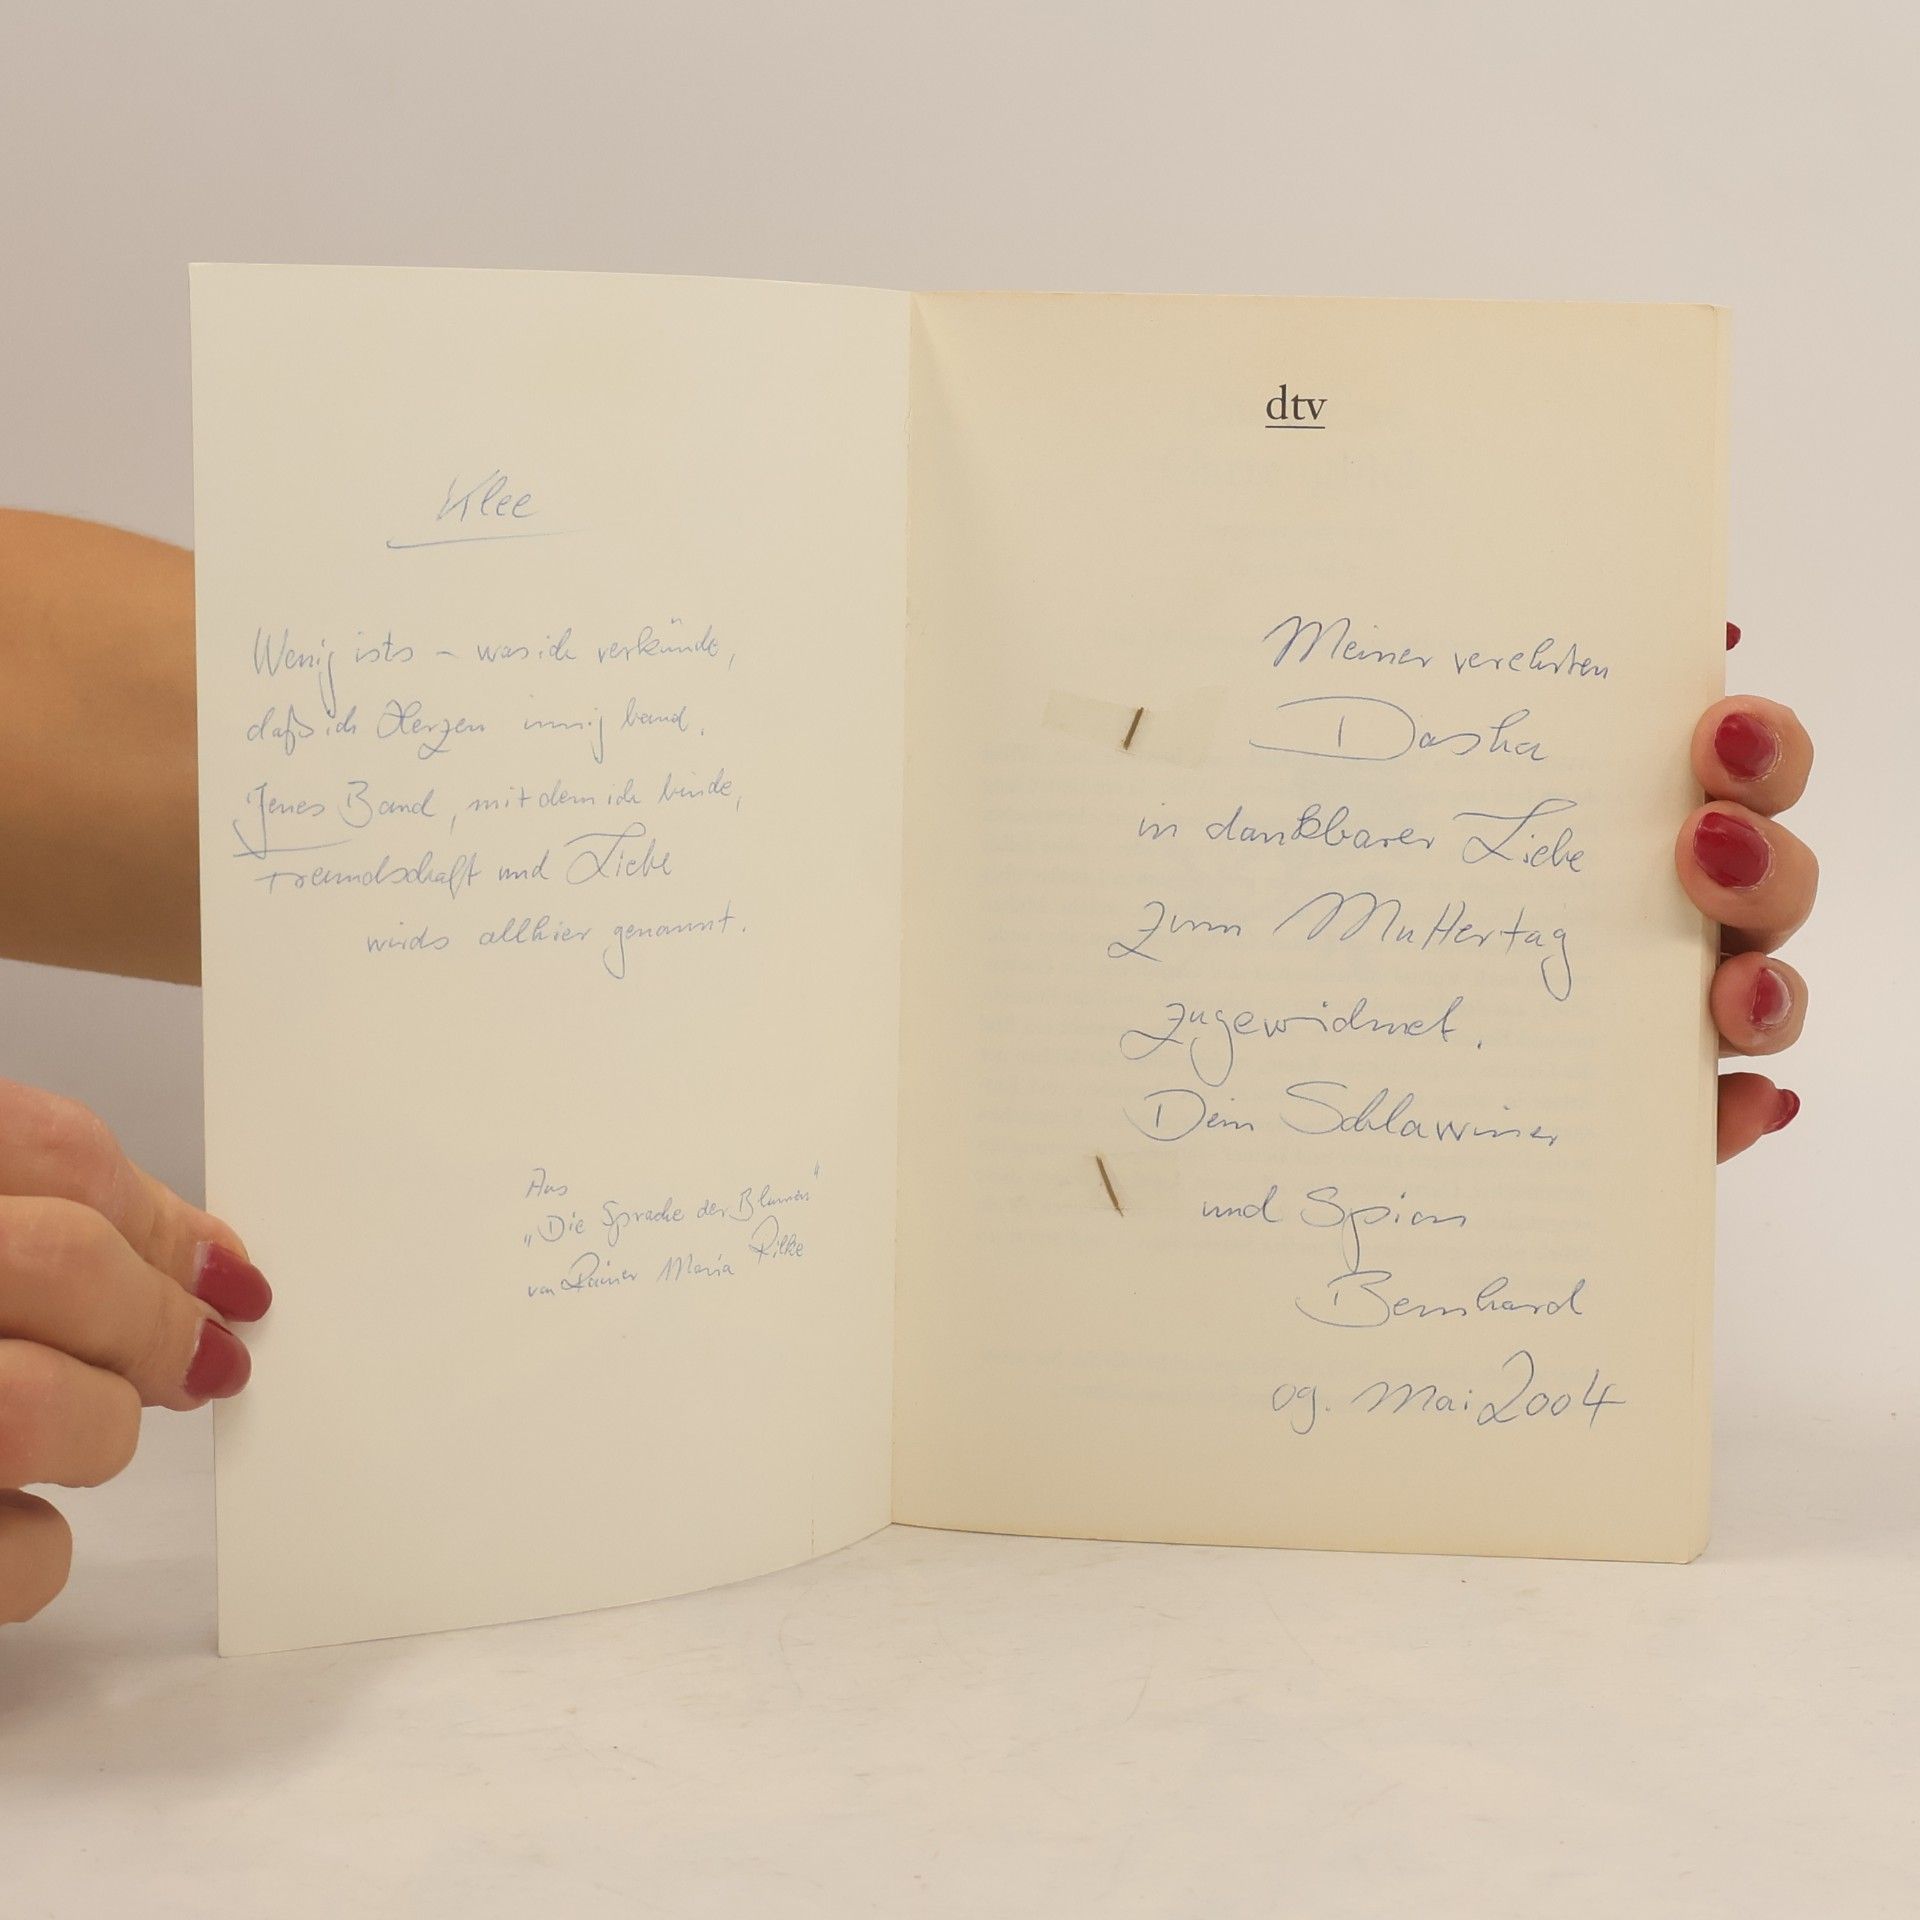 Klee
Wenig ists – was ich verkünde,
daß ich Herzen innig band.
Jenes Band, mit dem ich binde,
Freundschaft und Liebe
wirds allhier genannt.
Aus
„Die Sprache der Blumen“
von Rainer Maria Rilke
dtv
Meiner verehrten
Dasha
in dankbarer Liebe
zum Muttertag
zugewidmet.
Dein Schlawiner
und Spion
Bernhard
09. Mai 2004